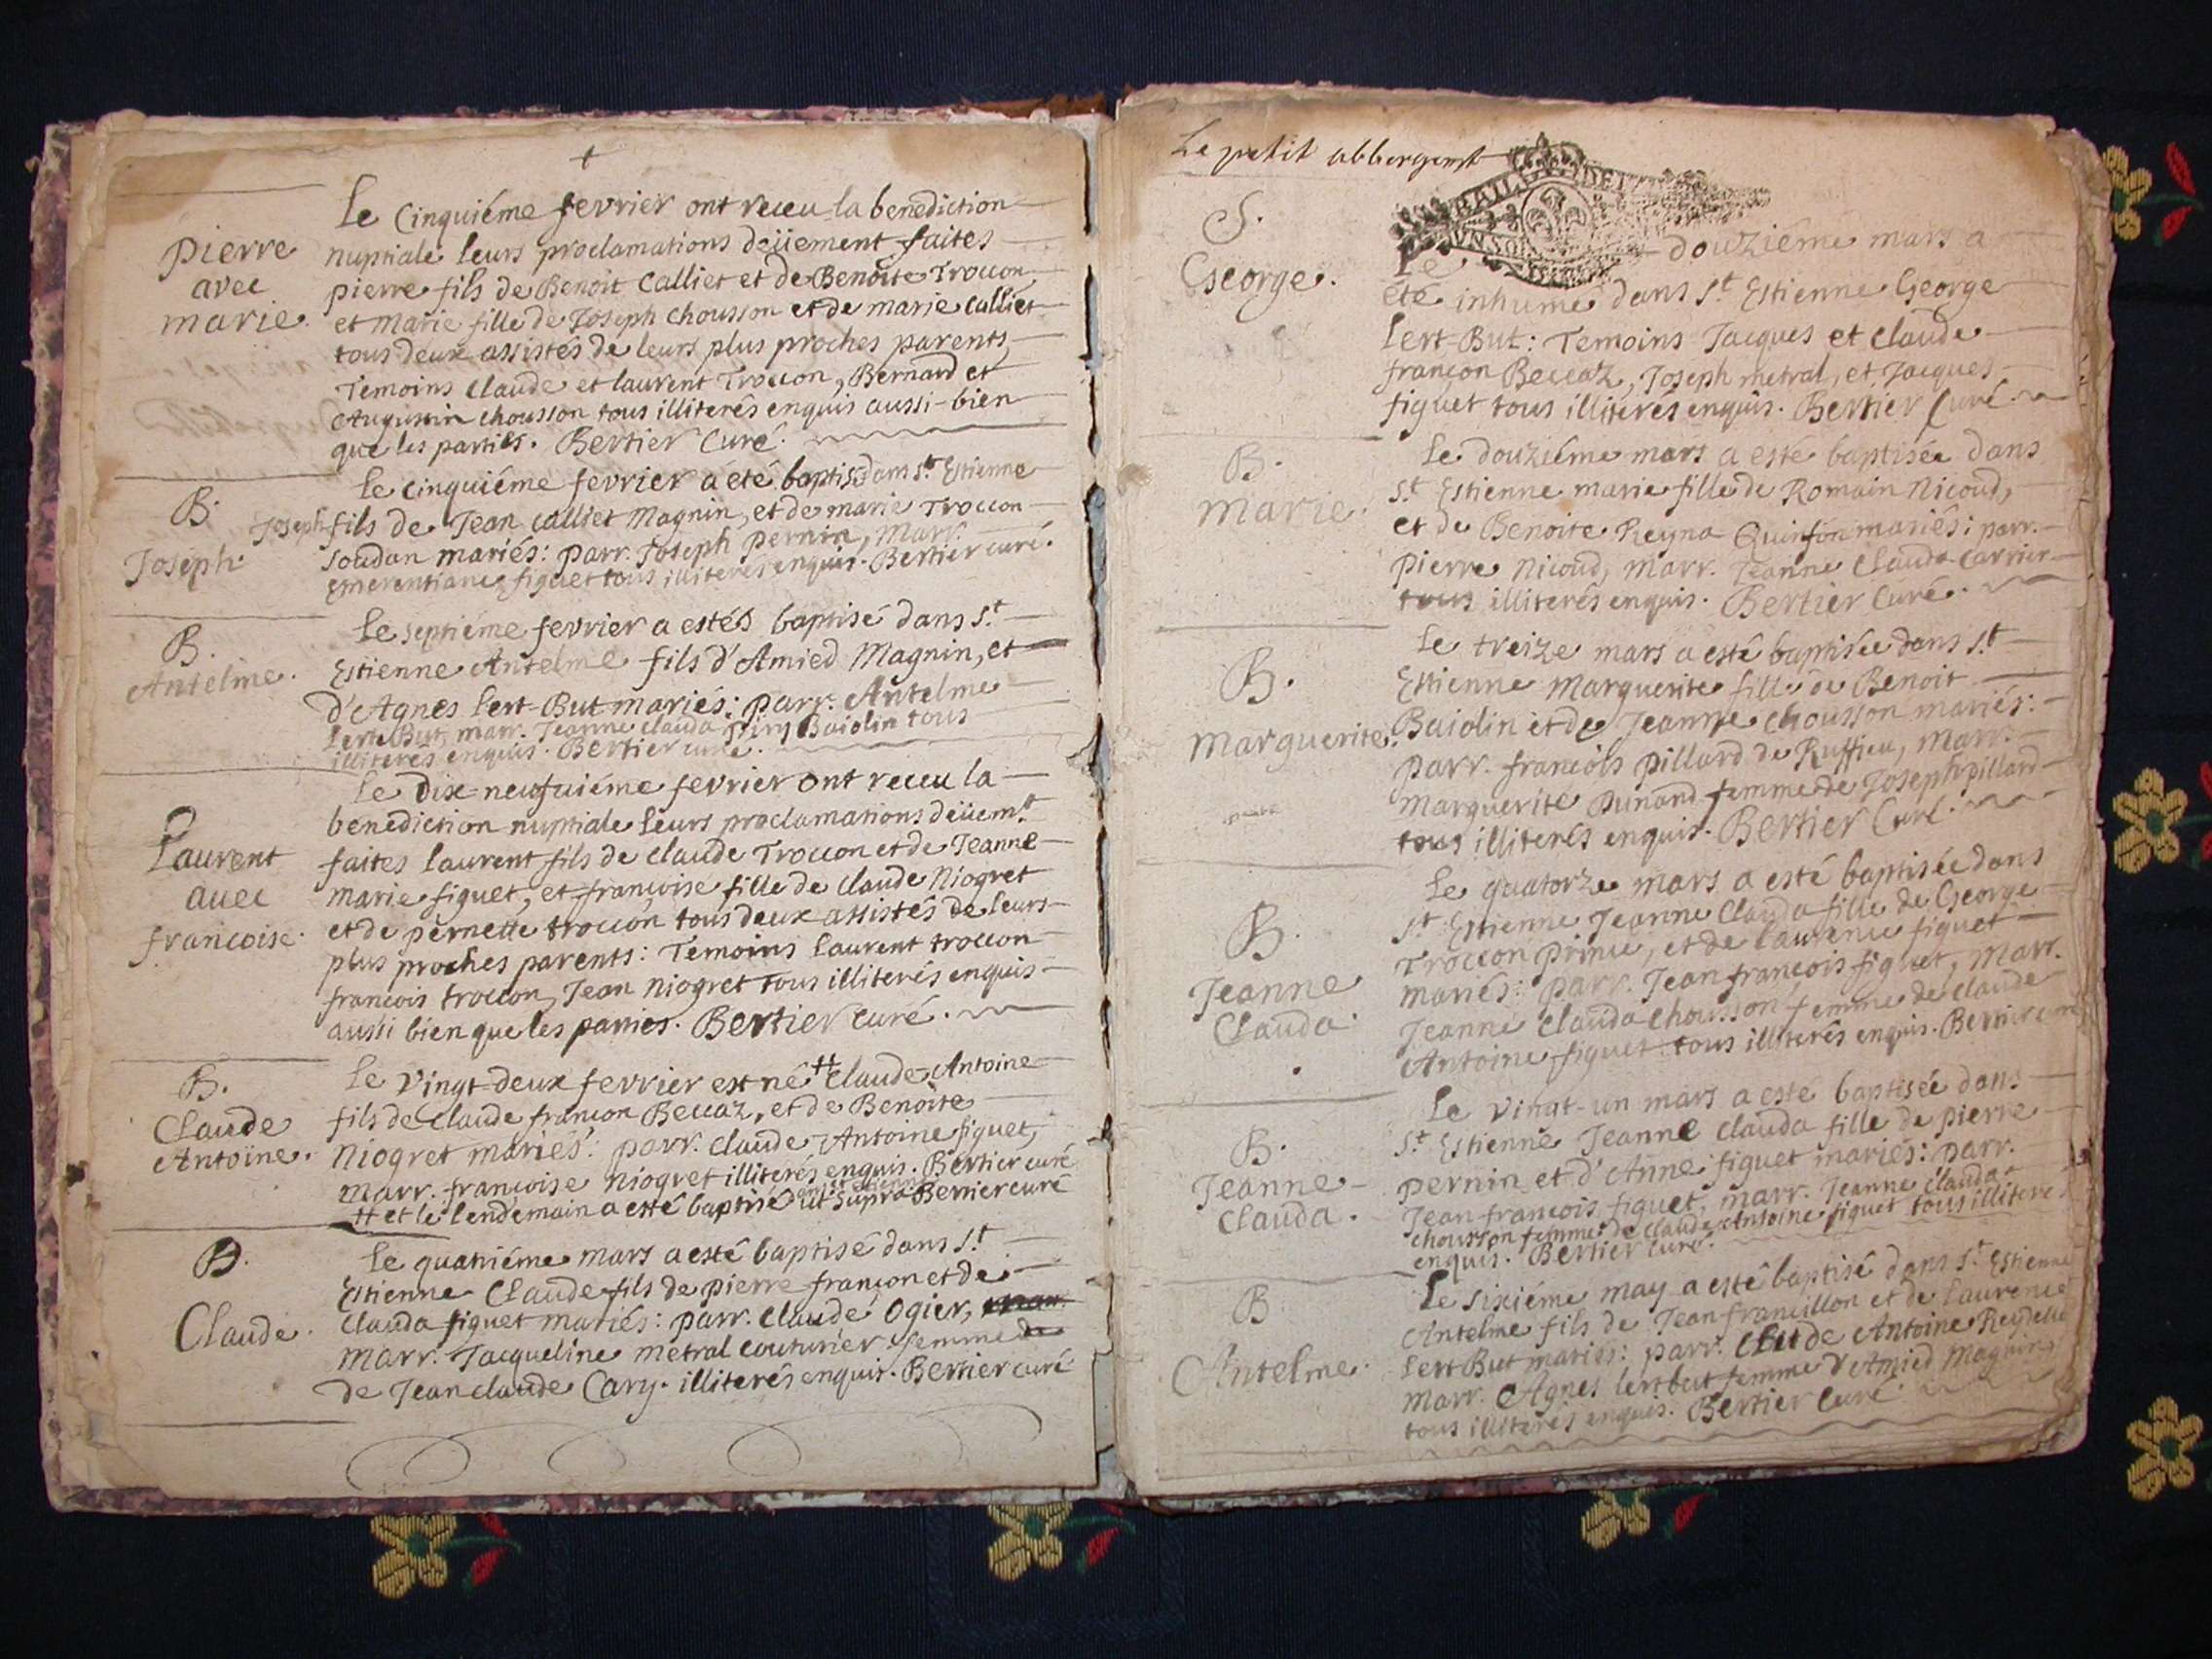 +
Le Cinquiéme fevrier ont receu la benediction
pierre
avec
marie.
nuptiale leurs proclamations deüement faites
pierre fils de Benoit Calliet et de Benoite Troccon
et Marie fille de Joseph chousson et de marie Calliet
tous deux assistés de leurs plus proches parents,
Temoins Claude et laurent Troccon, Bernard et
Augustin chousson tous illiterés enquis aussi-bien
que les parties. Bertier Curé.
B.
Joseph.
le cinquiéme fevrier a eté baptisé dans St. Estienne
Joseph fils de Jean Calliet Magnin, et de marie Troccon
soudan mariés: parr. Joseph pernin, Marr.
emerentiane figuet tous illiterés enquis. Bertier curé.
B.
Antelme.
Le septiéme fevrier a estés baptisé dans St.
Estienne Antelme fils d'Amied Magnin, et
d'Agnes lert-But mariés: parr. Antelme
lert But, marr. Jeanne clauda Baiolin tous
illiterés enquis. Bertier curé.
Laurent
avec
francoise.
Le Dix-neufuiéme fevrier ont receu la
benediction nuptiale leurs proclamations deüemt.
faites laurent fils de claude Troccon et de Jeanne
marie figuet, et francoise fille de claude Niogret
et de pernette troccon tous deux assistés de leurs
plus proches parents: Temoins laurent troccon
francois troccon, Jean Niogret tous illiterés enquis
aussi bien que les parties. Bertier curé.
B.
Claude
Antoine.
Le vingt-deux fevrier est né ++ Claude-Antoine
fils de Claude françon Beccaz, et de Benoite
Niogret mariés: parr. claude Antoine figuet,
marr. francoise Niogret illiterés enquis. Bertier curé
++ et le lendemain a esté baptisé ut supra Bertier curé
B.
Claude.
Le quatriéme mars a esté baptisé dans St.
Estienne Claude fils de pierre françon et de
clauda figuet mariés: parr. claude Ogier,
marr. Jacqueline metral couturier femme
de Jean claude Cary. illiterés enquis. Bertier curé
Le petit abbergemt
S.
George.
Le douziéme mars a
été inhumé dans St. Estienne George
Lert-But: Temoins Jacques et Claude
françon Beccaz, Joseph metral, et Jacques
figuet tous illiterés enquis. Bertier Curé.
B.
Marie.
Le douziéme mars a esté baptisée dans
St. Estienne marie fille de Romain Nicoud,
et de Benoite Reyna Quinson mariés: parr.
pierre Nicoud, marr. Jeanne Clauda Carrier
tous illiterés enquis. Bertier Curé.
B.
Marguerite.
Le treize mars a esté baptisée dans St.
Estienne Marguerite fille de Benoit
Baiolin et de Jeanne Chousson mariés:
parr. francois pillard de Ruffieu, Marr.
Marguerite Dunand femme de Joseph pillard
tous illiterés enquis. Bertier Curé.
B.
Jeanne
Clauda.
Le quatorze mars a esté baptisée dans
St. Estienne Jeanne Clauda fille de George
Troccon prince, et de laurence figuet
mariés: parr. Jean francois figuet, Marr.
Jeanne Clauda chousson femme de claude
Antoine figuet tous illiterés enquis. Bertier curé
B.
Jeanne
Clauda.
Le vingt-un mars a esté baptisée dans
St. Estienne Jeanne clauda fille de pierre
pernin et d'Anne figuet mariés: parr.
Jean francois figuet, marr. Jeanne clauda
chousson femme de claude Antoine figuet tous illiteres
enquis. Bertier curé.
B
Antelme.
Le sixiéme may a esté baptisé dans St. Estienne
Antelme fils de Jean francillon et de laurence
lert But mariés: parr. Claude Antoine Reydellet
marr. Agnes lert but femme d'Amied Magnin
tous illiterés enquis. Bertier Curé.